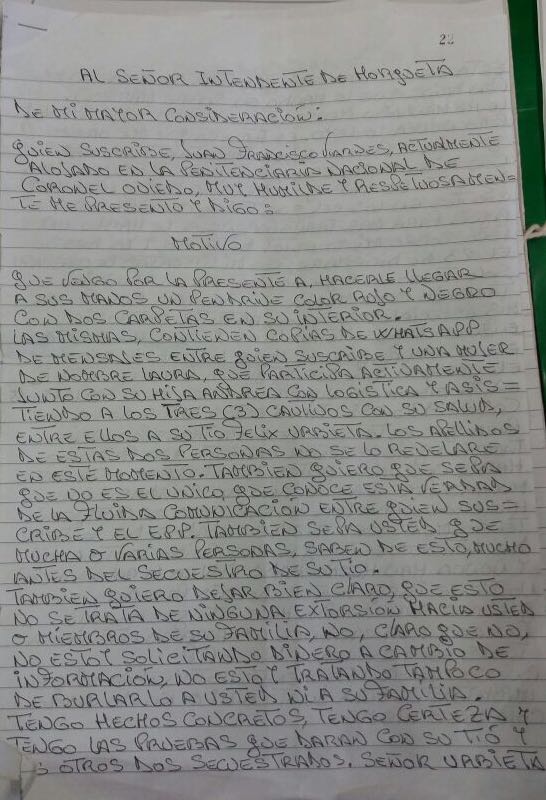 22
AL SEÑOR INTENDENTE DE HORQUETA
DE MI MAYOR CONSIDERACION:
QUIEN SUSCRIBE, JUAN FRANCISCO VIARDES, ACTUALMENTE
ALOJADO EN LA PENITENCIARIA NACIONAL DE
CORONEL OVIEDO, MUY HUMILDE Y RESPETUOSAMEN=
TE ME PRESENTO Y DIGO:
MOTIVO
QUE VENGO POR LA PRESENTE A, HACERLE LLEGAR
A SUS MANOS UN PENDRIVE COLOR ROJO Y NEGRO
CON DOS CARPETAS EN SU INTERIOR.
LAS MISMAS, CONTIENEN COPIAS DE WHATSAPP
DE MENSAJES ENTRE QUIEN SUSCRIBE Y UNA MUJER
DE NOMBRE LAURA, QUE PARTICIPA ACTIVAMENTE
JUNTO CON SU HIJA ANDREA CON LOGISTICA Y ASIS=
TIENDO A LOS TRES (3) CAUTIVOS CON SU SALUD,
ENTRE ELLOS A SU TIO FELIX URBIETA. LOS APELLIDOS
DE ESTAS DOS PERSONAS NO SE LO REVELARE
EN ESTE MOMENTO. TAMBIEN QUIERO QUE SEPA
QUE NO ES EL UNICO QUE CONOCE ESTA VERDAD
DE LA FLUIDA COMUNICACION ENTRE QUIEN SUS=
CRIBE Y EL EPP. TAMBIEN SEPA USTED QUE
MUCHA O VARIAS PERSONAS, SABEN DE ESTO, MUCHO
ANTES DEL SECUESTRO DE SU TIO.
TAMBIEN QUIERO DEJAR BIEN CLARO, QUE ESTO
NO SE TRATA DE NINGUNA EXTORSION HACIA USTED
O MIEMBROS DE SU FAMILIA, NO, CLARO QUE NO,
NO ESTOY SOLICITANDO DINERO A CAMBIO DE
INFORMACION, NO ESTOY TRATANDO TAMPOCO
DE BURLARLO A USTED NI A SU FAMILIA.
TENGO HECHOS CONCRETOS, TENGO CERTEZA Y
TENGO LAS PRUEBAS QUE DARAN CON SU TIO Y
OTROS DOS SECUESTRADOS. SEÑOR URBIETA